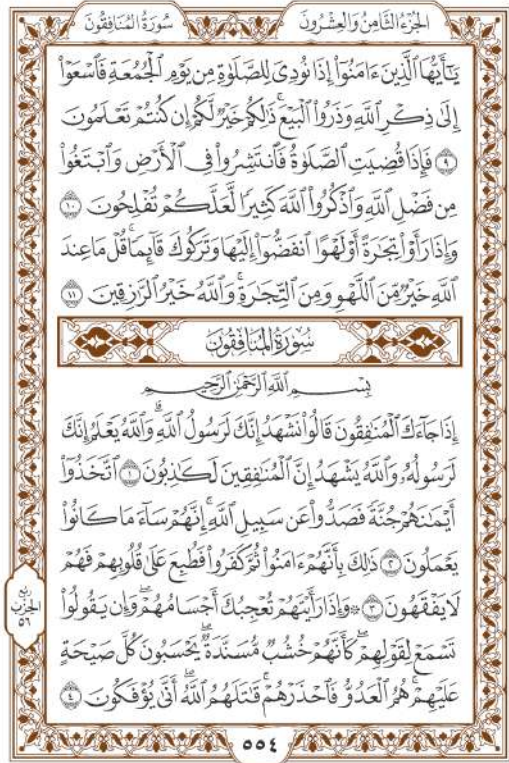 سُورَةُ المُنَافِقُون
الجُزْءُ الثَّامِنُ وَالعِشْرُونَ
يَٰٓأَيُّهَا ٱلَّذِينَ ءَامَنُوٓاْ إِذَا نُودِيَ لِلصَّلَوٰةِ مِن يَوۡمِ ٱلۡجُمُعَةِ فَٱسۡعَوۡاْ
إِلَىٰ ذِكۡرِ ٱللَّهِ وَذَرُواْ ٱلۡبَيۡعَۚ ذَٰلِكُمۡ خَيۡرٞ لَّكُمۡ إِن كُنتُمۡ تَعۡلَمُونَ
٩ فَإِذَا قُضِيَتِ ٱلصَّلَوٰةُ فَٱنتَشِرُواْ فِي ٱلۡأَرۡضِ وَٱبۡتَغُواْ
مِن فَضۡلِ ٱللَّهِ وَٱذۡكُرُواْ ٱللَّهَ كَثِيرٗا لَّعَلَّكُمۡ تُفۡلِحُونَ ١٠
وَإِذَا رَأَوۡاْ تِجَٰرَةً أَوۡ لَهۡوًا ٱنفَضُّوٓاْ إِلَيۡهَا وَتَرَكُوكَ قَآئِمٗاۚ قُلۡ مَا عِندَ
ٱللَّهِ خَيۡرٞ مِّنَ ٱللَّهۡوِ وَمِنَ ٱلتِّجَٰرَةِۚ وَٱللَّهُ خَيۡرُ ٱلرَّٰزِقِينَ ١١
سُورَةُ المُنَافِقُونَ
بِسۡمِ ٱللَّهِ ٱلرَّحۡمَٰنِ ٱلرَّحِيمِ
إِذَا جَآءَكَ ٱلۡمُنَٰفِقُونَ قَالُواْ نَشۡهَدُ إِنَّكَ لَرَسُولُ ٱللَّهِۗ وَٱللَّهُ يَعۡلَمُ إِنَّكَ
لَرَسُولُهُۥ وَٱللَّهُ يَشۡهَدُ إِنَّ ٱلۡمُنَٰفِقِينَ لَكَٰذِبُونَ ١ ٱتَّخَذُوٓاْ
أَيۡمَٰنَهُمۡ جُنَّةٗ فَصَدُّواْ عَن سَبِيلِ ٱللَّهِۚ إِنَّهُمۡ سَآءَ مَا كَانُواْ
يَعۡمَلُونَ ٢ ذَٰلِكَ بِأَنَّهُمۡ ءَامَنُواْ ثُمَّ كَفَرُواْ فَطُبِعَ عَلَىٰ قُلُوبِهِمۡ فَهُمۡ
لَا يَفۡقَهُونَ ٣ ۞ وَإِذَا رَأَيۡتَهُمۡ تُعۡجِبُكَ أَجۡسَامُهُمۡۖ وَإِن يَقُولُواْ
تَسۡمَعۡ لِقَوۡلِهِمۡۖ كَأَنَّهُمۡ خُشُبٞ مُّسَنَّدَةٞۖ يَحۡسَبُونَ كُلَّ صَيۡحَةٍ
عَلَيۡهِمۡۚ هُمُ ٱلۡعَدُوُّ فَٱحۡذَرۡهُمۡۚ قَٰتَلَهُمُ ٱللَّهُۖ أَنَّىٰ يُؤۡفَكُونَ ٤
ربع
الحزب
٥٦
٥٥٤